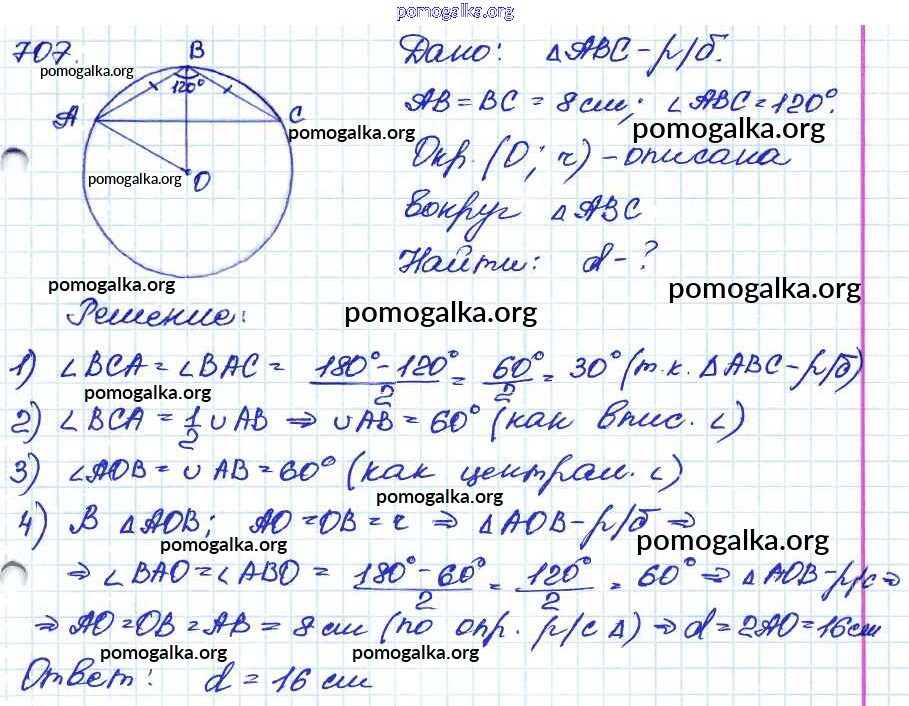 pomogalka.org
707.
B
Дано: △ABC – р/б.
pomogalka.org
120°
AB = BC = 8 см; ∠ABC = 120°.
A
C
pomogalka.org
pomogalka.org
Окр. (O; r) – описана
pomogalka.org
O
вокруг △ABC
Найти: d – ?
pomogalka.org
pomogalka.org
Решение:
pomogalka.org
1) ∠BCA = ∠BAC = (180° – 120°)/2 = 60°/2 = 30° (т.к. △ABC – р/б)
pomogalka.org
2) ∠BCA = 1/2 ∪AB ⇒ ∪AB = 60° (как впис. ∠)
3) ∠AOB = ∪AB = 60° (как централ. ∠)
pomogalka.org
4) В △AOB; AO = OB = r ⇒ △AOB – р/б ⇒
pomogalka.org
pomogalka.org
⇒ ∠BAO = ∠ABO = (180° – 60°)/2 = 120°/2 = 60° ⇒ △AOB – р/с ⇒
⇒ AO = OB = AB = 8 см (по опр. р/с △) ⇒ d = 2AO = 16 см
pomogalka.org
pomogalka.org
Ответ: d = 16 см